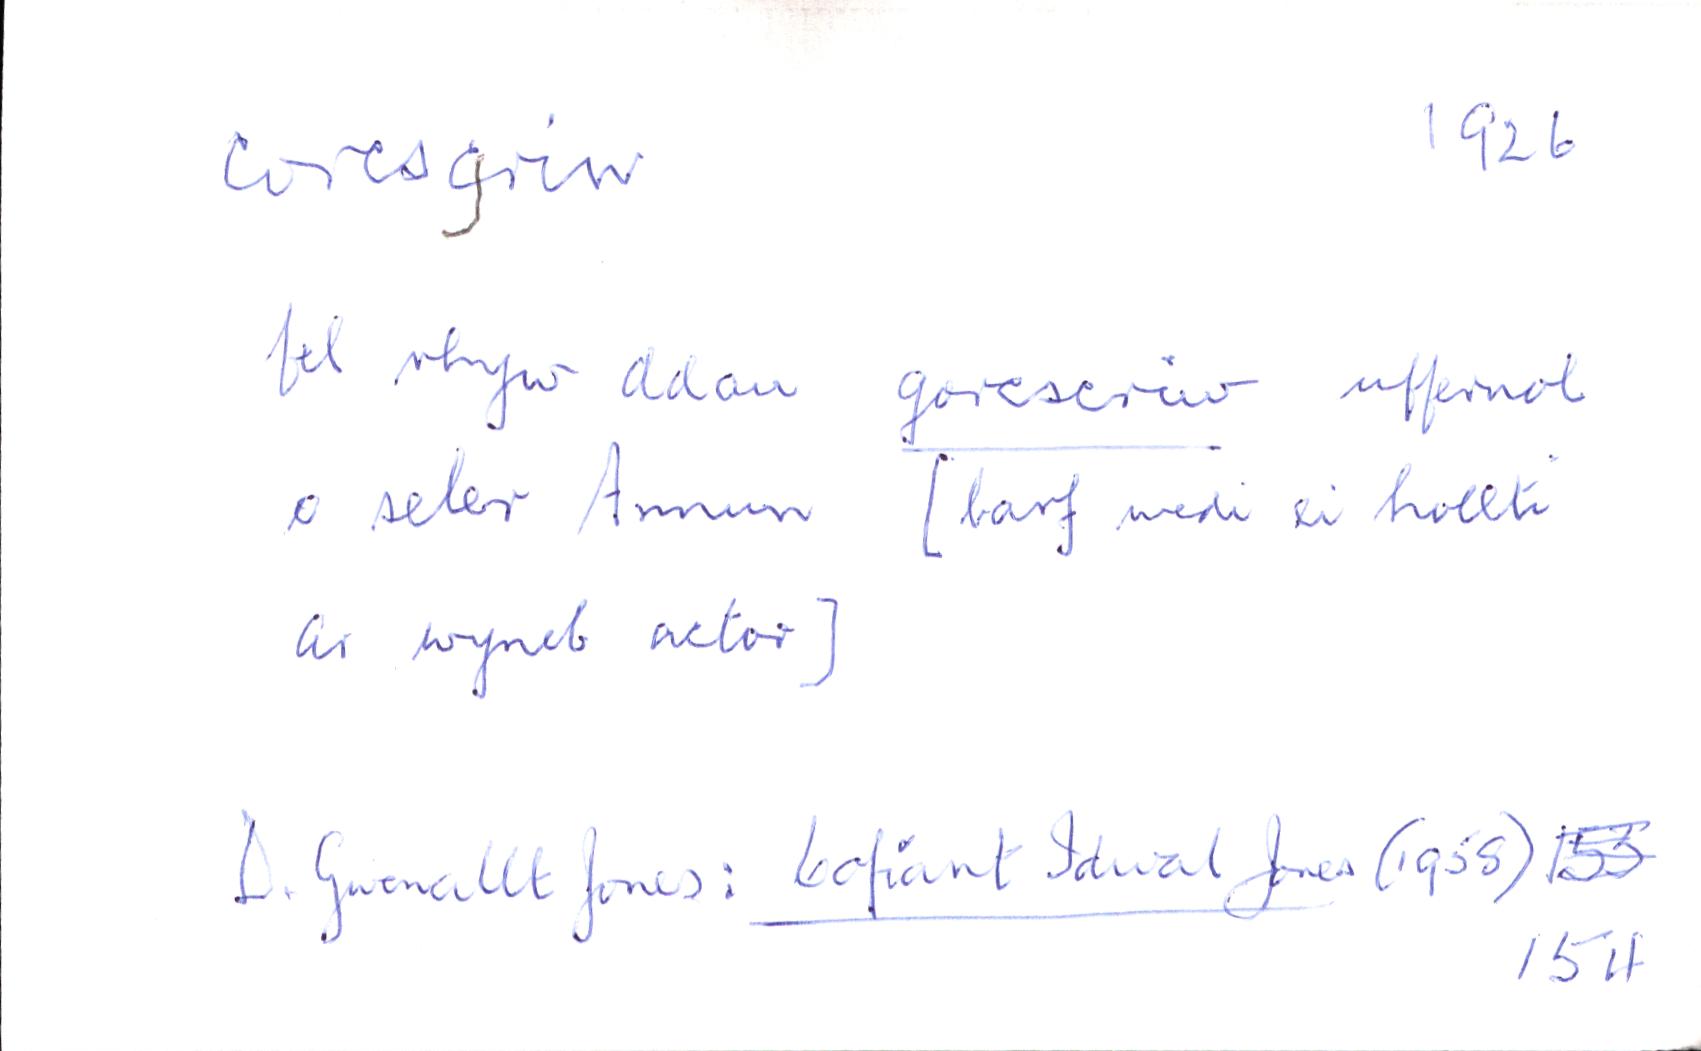 corcsgriw 1926
fel rhyw ddau gorcscriw uffernol
o seler Annwn [barf wedi ei hollti
ar wyneb actor]
D. Gwenallt Jones: Cofiant Idwal Jones (1958) 153
154